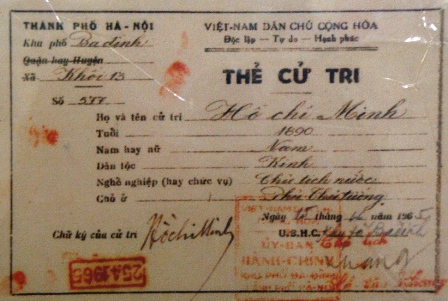 THÀNH PHỐ HÀ-NỘI
Khu phố Ba đình
Quận hay Huyện
Xã Khối 13
Số 577
VIỆT-NAM DÂN CHỦ CỘNG HÒA
Độc lập - Tự do - Hạnh phúc
THẺ CỬ TRI
Họ và tên cử tri Hồ chí Minh
Tuổi 1890
Nam hay nữ Nam
Dân tộc Kinh
Nghề nghiệp (hay chức vụ) Chủ tịch nước
Chỗ ở Phủ Chủ tướng
Ngày tháng năm 1965
U.B.H.C. Ba đình
Chữ ký của cử tri HồchíMinh
ỦY-BAN
HÀNH-CHÍNH
25.4.1965